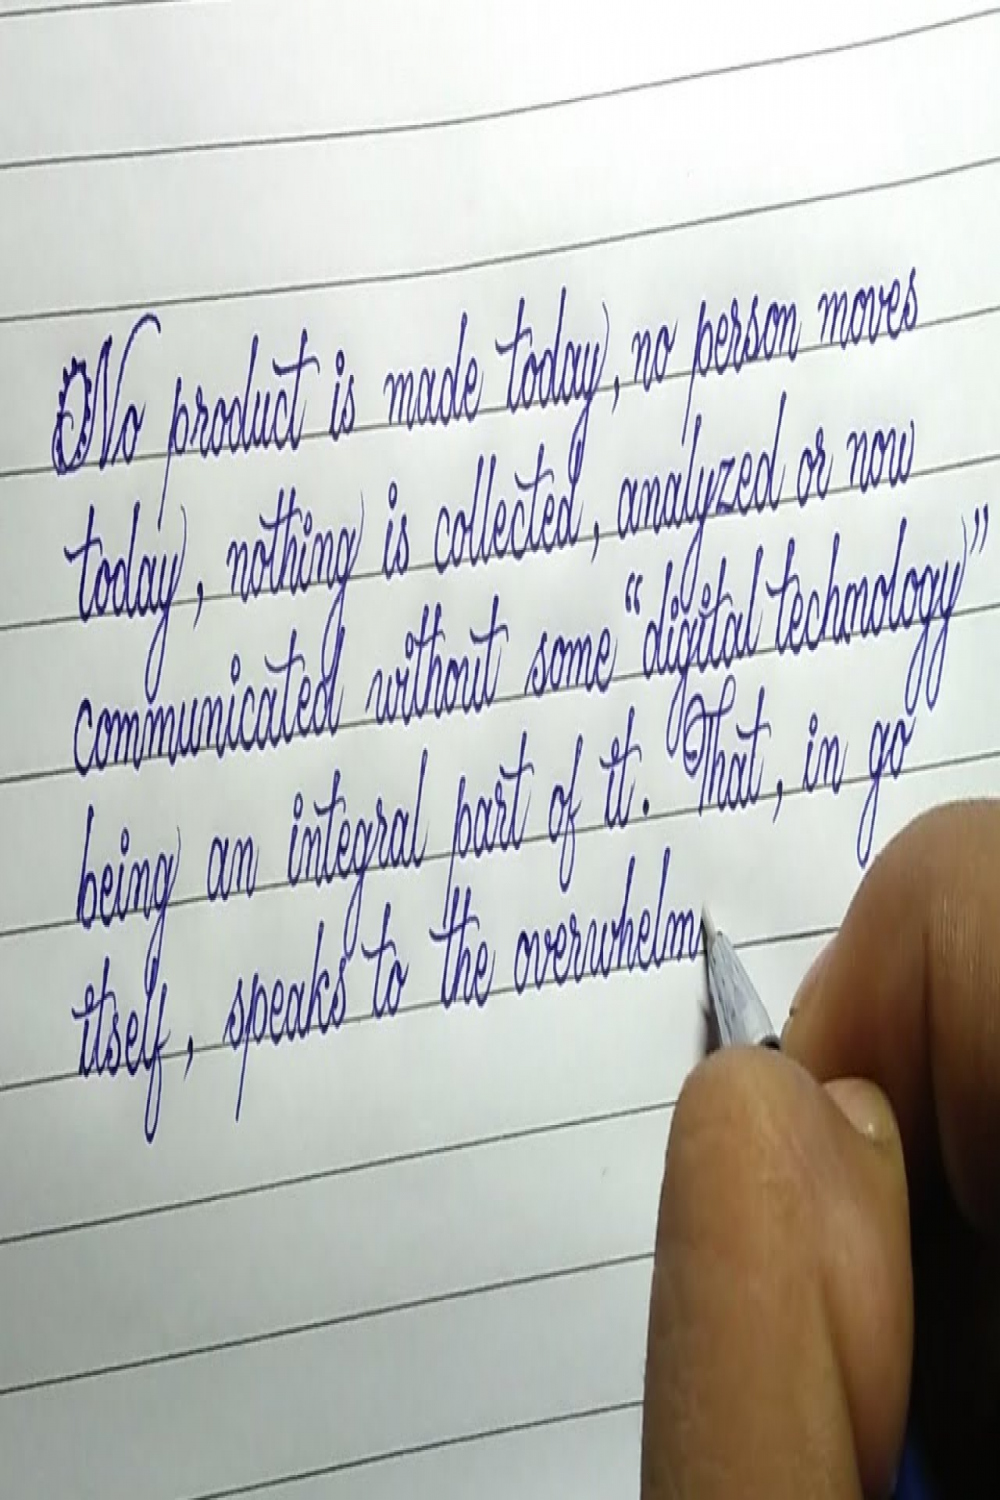 No product is made today, no person moves
today, nothing is collected, analyzed or now
communicated without some "digital technology"
being an integral part of it. That, in go
itself, speaks to the overwhelm